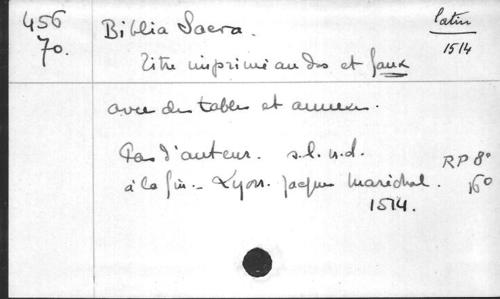 456
70.
Biblia Sacra.
latin
1514
Titre imprimé au dos et faux
avec des tables et annexes.
Pas d'auteur. s.l.n.d.
à la fin - Lyon. Jacques Maréchal.
1514.
RP 8°
160